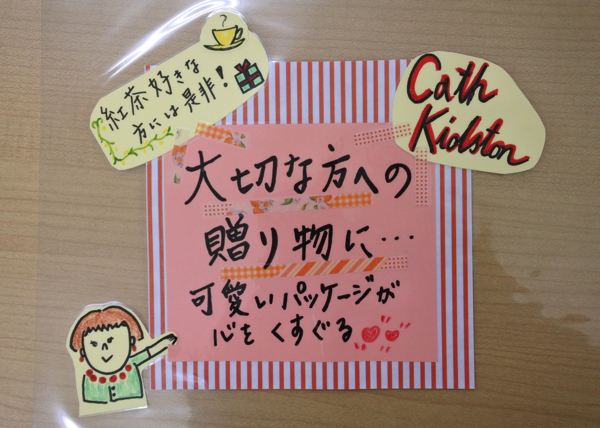 紅茶好きな
方には是非!
Cath
Kidston
大切な方への
贈り物に…
可愛いパッケージが
心をくすぐる